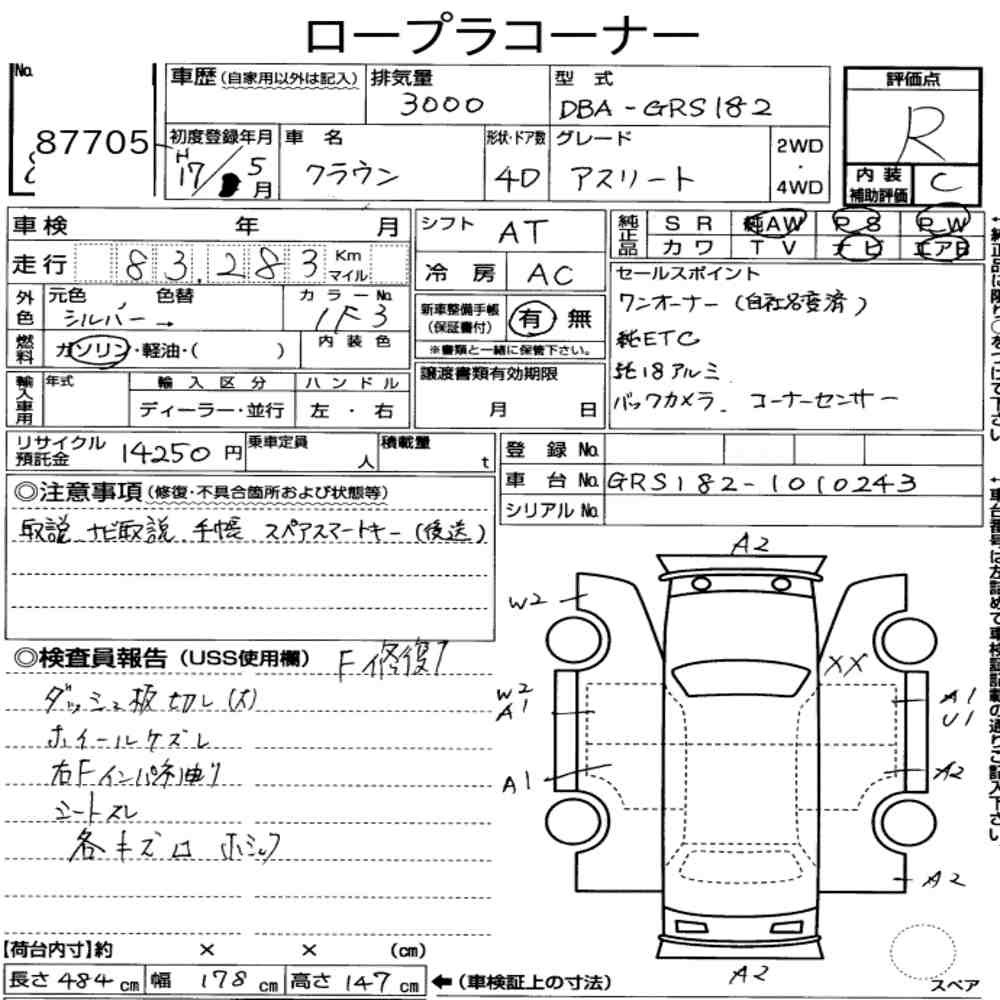 ロープラコーナー
No.
87705
車歴(自家用以外は記入)
排気量
3000
型 式
DBA-GRS182
評価点
R
初度登録年月
H
17/5月
車 名
クラウン
形状・ドア数
4D
グレード
アスリート
2WD
・
4WD
内装
補助評価
C
車検 年 月
走行 83,283 Km
マイル
シフト AT
冷房 AC
純正品
SR 純AW PS PW
カワ TV ナビ エアB
外色
元色 色替
シルバー→
カラーNo.
1F3
燃料
ガソリン・軽油・( )
内装色
新車整備手帳
(保証書付)
有 無
※書類と一緒に保管下さい。
セールスポイント
ワンオーナー(自社名変済)
純ETC
純18アルミ
バックカメラ、コーナーセンサー
輸入車用
年式
輸入区分
ディーラー・並行
ハンドル
左・右
譲渡書類有効期限
月 日
リサイクル
預託金 14250円
乗車定員
人
積載量
t
登録No.
車台No. GRS182-1010243
シリアルNo.
◎注意事項(修復・不具合箇所および状態等)
取説、ナビ取説、手帳、スペアスマートキー(後送)
◎検査員報告(USS使用欄)
F修復
ダッシュ板切レ(大)
ホイールケズレ
右Fインパネ曲り
シートスレ
各キズ凹
A2
W2
XX
W2
A1
A1
U1
A1
A2
A2
A2
スペア
【荷台内寸】約 × × (cm)
長さ484cm 幅 178cm 高さ147cm
←(車検証上の寸法)
↑純正品に限り○をつけて下さい
↑車台番号は左詰めで車検証記載の通りご記入下さい。